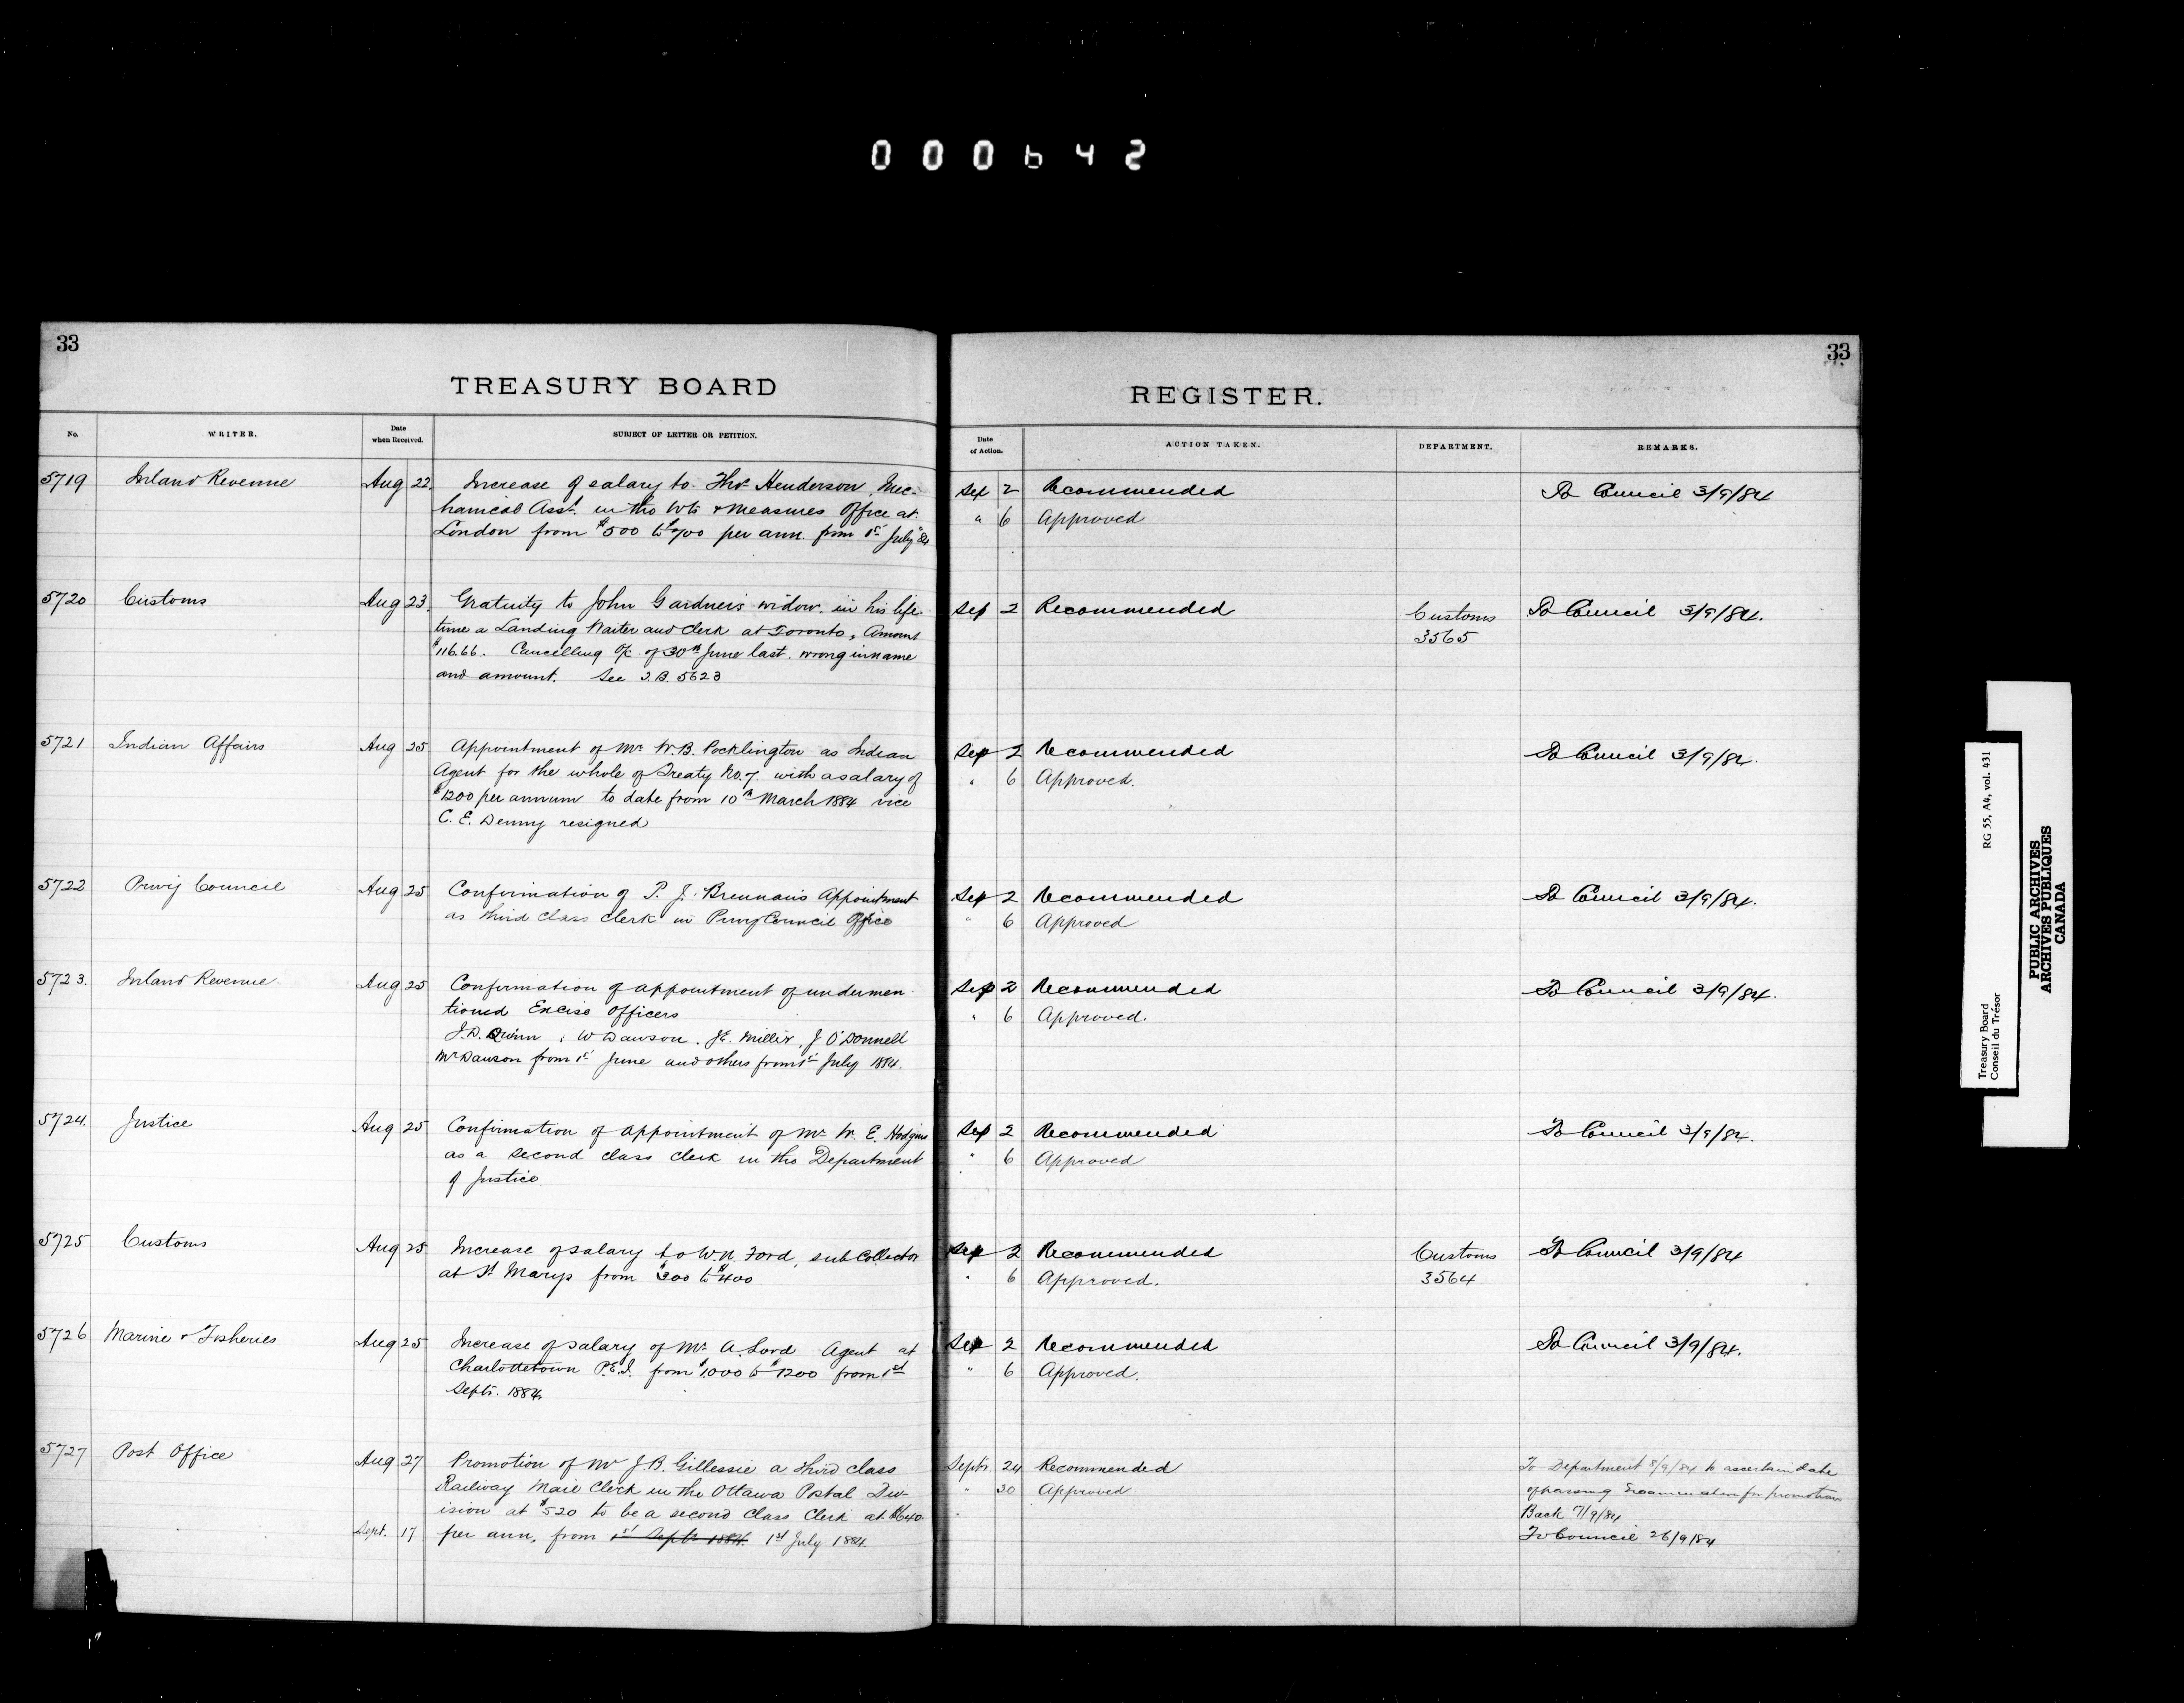 000642
33
TREASURY BOARD
No.
WRITER.
Date
when Received.
SUBJECT OF LETTER OR PETITION.
5719 Inland Revenue Aug 22 Increase of salary to Thos Henderson, Mec-
hanical Asst. in the Wts & Measures Office at
London from $500 to $700 per ann. from 1st July '84
5720 Customs Aug 23. Gratuity to John Gardner's widow. in his life
time a Landing Waiter and Clerk at Toronto, Amount
$116.66. Cancelling O/C of 30th June last. wrong in name
and amount. See T.B. 5623
5721 Indian Affairs Aug 25 Appointment of Mr W.B. Pocklington as Indian
Agent for the whole of Treaty No. 7. with a salary of
$1200 per annum to date from 10th March 1884 vice
C. E. Denny resigned
5722 Privy Council Aug 25 Confirmation of P. J. Brennan's Appointment
as third class Clerk in Privy Council Office
5723. Inland Revenue Aug 25 Confirmation of appointment of undermen
tioned Excise Officers
J.D. Quinn, W Dawson, J.E. Miller, J O'Donnell
Mr Dawson from 1st June and others from 1st July 1884.
5724. Justice Aug 25 Confirmation of appointment of Mr W. E. Hodgins
as a second class clerk in the Department
of Justice
5725 Customs Aug 25 Increase of salary to W.N. Ford, sub Collector
at St Marys from $300 to $400
5726 Marine & Fisheries Aug 25 Increase of salary of Mr A. Lord Agent at
Charlottetown P.E.I. from $1000 to $1200 from 1st
Septr. 1884.
5727 Post Office Aug 27 Promotion of Mr J.B. Gillessie a third class
Railway Mail Clerk in the Ottawa Postal Div-
ision at $520 to be a second Class Clerk at $640
Sept. 17 per ann, from 1st Septr 1884. 1st July 1884.
33
REGISTER.
Date
of Action.
ACTION TAKEN.
DEPARTMENT.
REMARKS.
Sep 2 Recommended To Council 3/9/84
" 6 Approved
Sep 2 Recommended Customs To Council 3/9/84.
3565
Sep 2 Recommended To Council 3/9/84.
" 6 Approved.
Sep 2 Recommended To Council 3/9/84.
" 6 Approved
Sep 2 Recommended To Council 3/9/84.
" 6 Approved.
Sep 2 Recommended To Council 3/9/84.
" 6 Approved
Sep 2 Recommended Customs To Council 3/9/84
" 6 Approved. 3564
Sep 2 Recommended To Council 3/9/84.
" 6 Approved.
Septr. 24 Recommended To Department 5/9/84 to ascertain date
" 30 Approved of passing Examination for promotion
Back 7/9/84
To Council 26/9/84
Treasury Board RG 55, A4, vol. 431
Conseil du Trésor
PUBLIC ARCHIVES
ARCHIVES PUBLIQUES
CANADA